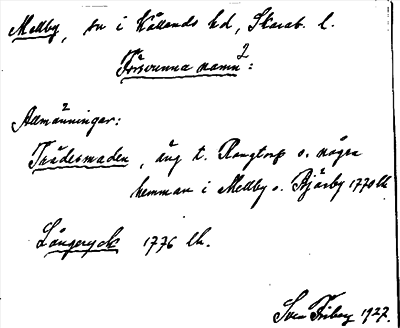 Mellby, sn i Kållands hd, Skarab. l.
Försvunna namn 2:
Allmänningar:
Trädesmaden, äng t. Rangtorp o. några
hemman i Mellby o. Bjärby 1770 lh
Långeryck 1776 lh.
Sven Friberg 1927.